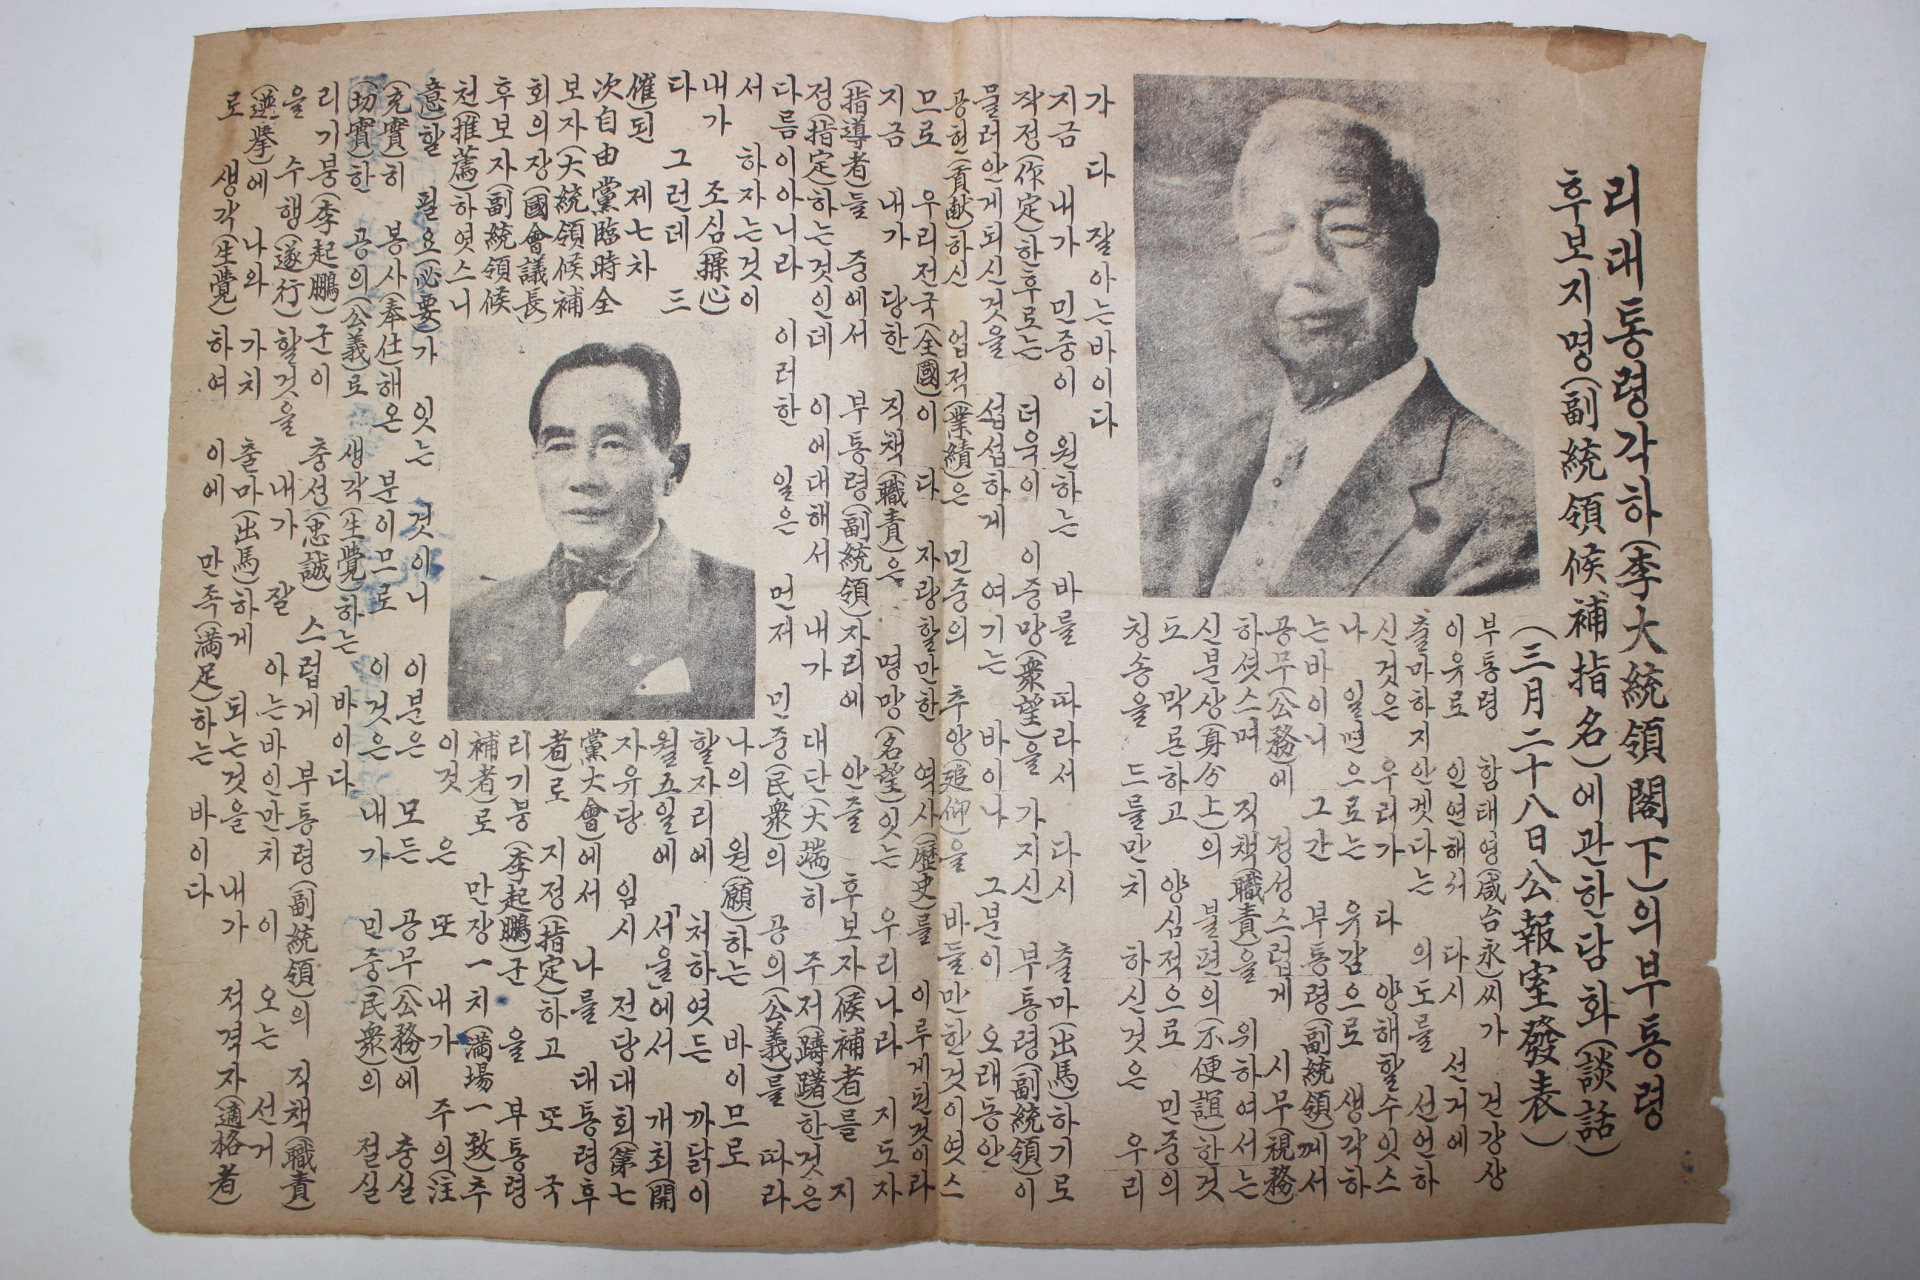 리대통령각하(李大統領閣下)의부통령
후보지명(副統領候補指名)에관한담화(談話)
(三月二十八日公報室發表)
부통령 함태영(咸台永)씨가 건강상
이유로 인연해서 다시 선거에
출마하지안켓다는 의도를 선언하
신것은 우리가 다 양해할수잇스
나 일면으로는 유감으로 생각하
는바이니 그간 부통령(副統領)께서
공무(公務)에 정성스럽게 시무(視務)
하셧스며 직책(職責)을 위하여서는
신분상(身分上)의 불편의(不便誼)한것
도 막론하고 양심적으로 민중의
칭송을 드를만치 하신것은 우리
가 다 잘아는바이다
지금 내가 민중이 원하는 바를 따라서 다시 출마(出馬)하기로
작정(作定)한후로는 더욱이 이중망(衆望)을 가지신 부통령(副統領)이
물러안게되신것을 섭섭하게 여기는 바이나 그분이 오래동안
공헌(貢献)하신 업적(業績)은 민중의 추앙(追仰)을 바들만한것이엿스
므로 우리전국(全國)이 다 자랑할만한 역사(歷史)를 이루게된것이라
지금 내가 당한 직책(職責)은 명망(名望)잇는 우리나라 지도자
(指導者)들 중에서 부통령(副統領)자리에 안줄 후보자(候補者)를 지
정(指定)하는것인데 이에대해서 내가 대단(大端)히 주저(躊躇)한것은
다름이아니라 이러한 일은 먼저 민중(民衆)의 공의(公義)를 따라
서 하자는것이 나의 원(願)하는 바이므로
내가 조심(操心)할자리에 처하엿든 까닭이
다 그런데 三월五일에 「서울」에서 개최(開
催)된 제七차 자유당 임시 전당대회(第七
次自由黨臨時全黨大會)에서 나를 대통령후
보자(大統領候補者)로 지정(指定)하고 또 국
회의장(國會議長)리기붕(李起鵬)군 을 부통령
후보자(副統領候補者)로 만장一치(満場一致)추
천(推薦)하엿스니 이것 은 또 내가 주의(注
意)할 필요(必要)가 잇는 것이니 이분은 모든 공무(公務)에 충실
(充實)히 봉사(奉仕)해온 분이므로 이것은 내가 민중(民衆)의 절실
(切實)한 공의(公義)로 생각(生覺)하는 바이다
리기붕(李起鵬)군이 충성(忠誠) 스럽게 부통령(副統領)의 직책(職責)
을 수행(遂行)할것을 내가 잘 아는바인만치 이 오는 선거
(選擧)에 나와 가치 출마(出馬)하게 되는것을 내가 적격자(適格者)
로 생각(生覺)하여 이에 만족(満足)하는 바이다